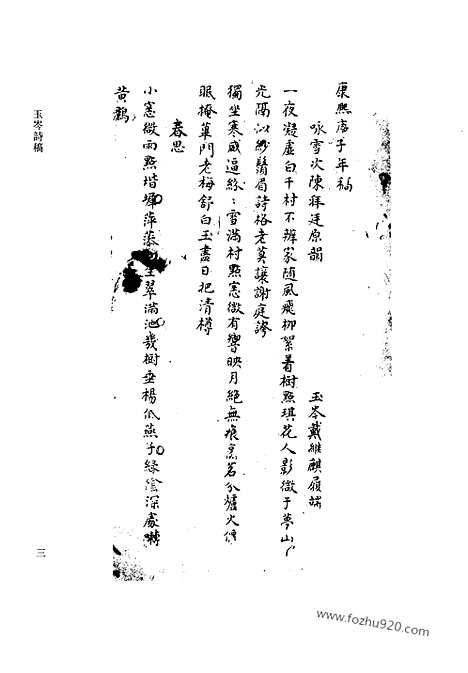 康熙庚子年稿
咏雪次陳祥廷原韻
玉岑戴維麒履端
一夜凝虛白千村不辨家隨風飛柳絮着樹點琪花人影微于夢山
光隔以紗鬚眉詩格老莫讓謝庭誇
獨坐寒威逼紛〻雪滿村點窓微有響映月絕無痕烹茗分爐火
眼掩蓽門老梅舒白玉盡日把清樽
春思
小窓微雨點堦墀萍 翠滿池幾樹垂楊低燕子綠陰深處囀
黄鸝
玉岑詩稿
三
www.fozhu920.com